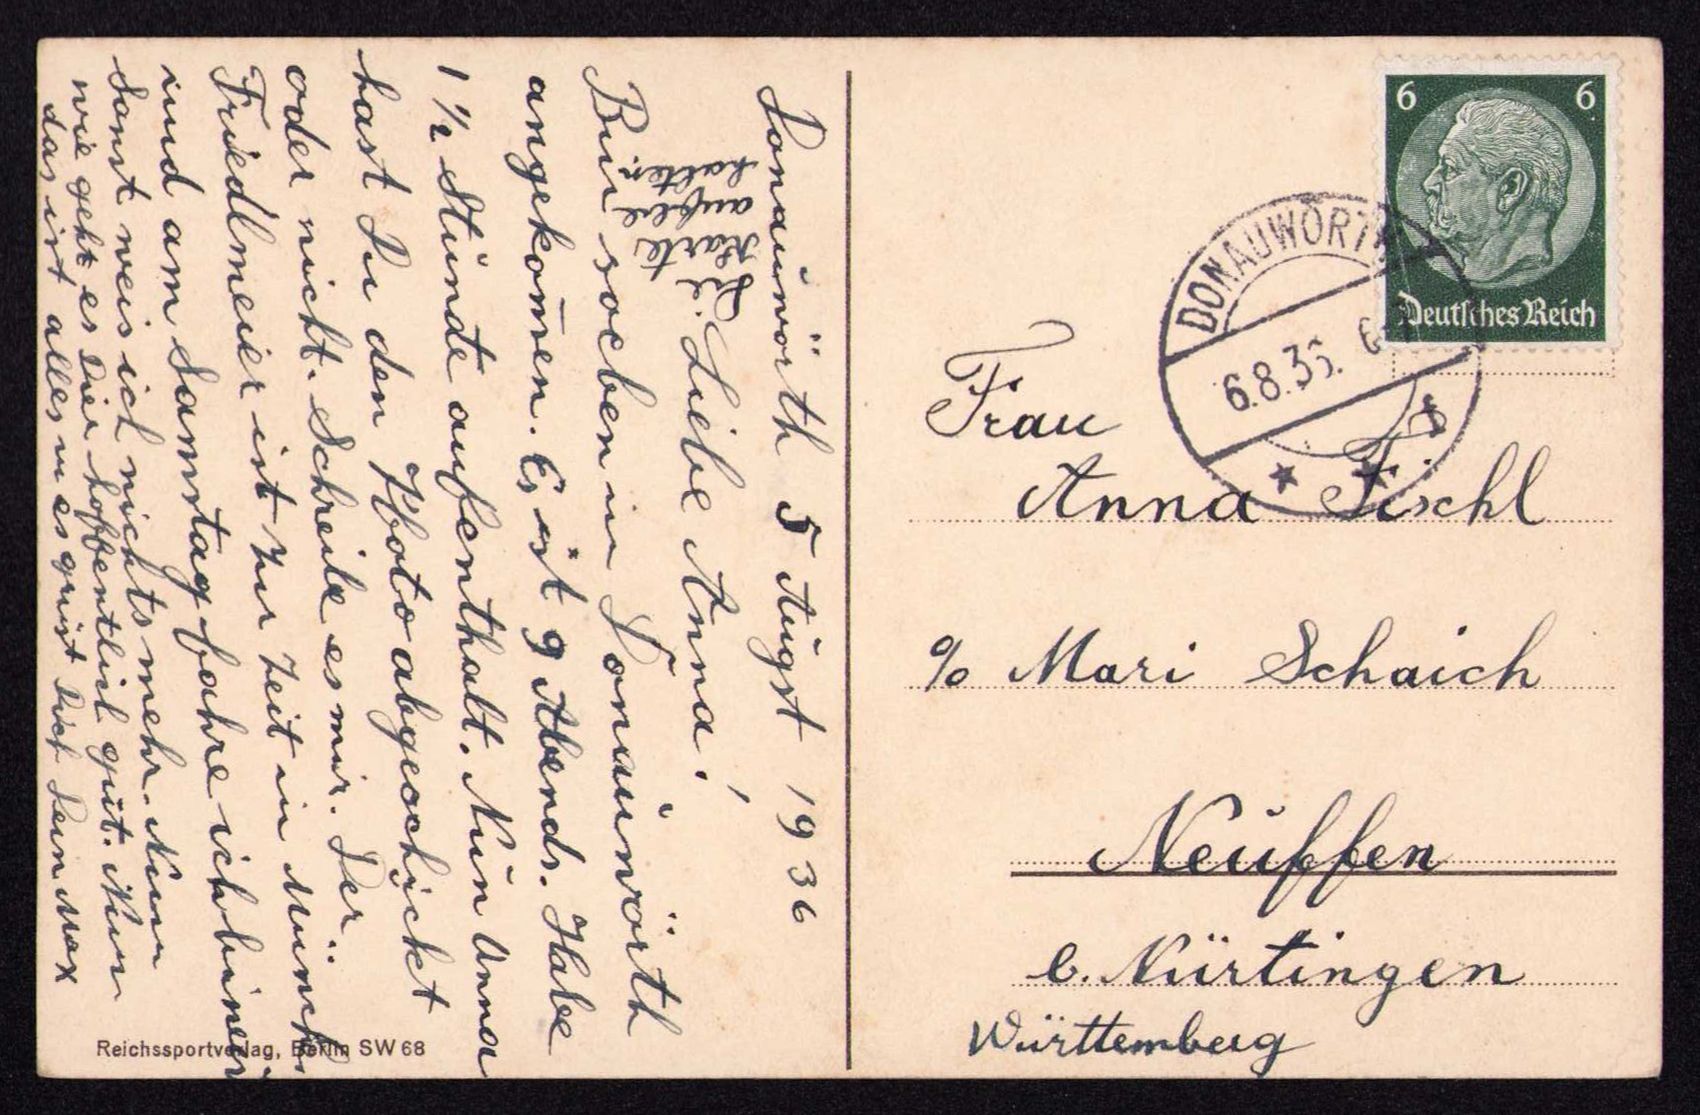 Donauwörth 5 August 1936
Die Karte aufbe halten
Liebe Anna!
Bin soeben in Donauwörth
angekom̄en. Es ist 9 Abends. Habe
1 ½ Stunde aufenthalt. Nun Anna
hast Du den Photo abgeschickt
oder nicht. Schreibe es mir. Der
Friedlmeier ist zur Zeit in Münch
und am Samstag fahre ich
Sonst weis ich nichts mehr. Nun
wie geht es Dir hoffentlich gut. Nun
das ist alles u es grüst Dich Dein Max
Reichssportverlag, Berlin SW 68
6 6
Deutsches Reich
DONAUWÖRTH
6.8.36.
Frau
Anna Fischl
c/o Mari Schaich
Neuffen
b. Nürtingen
Württemberg